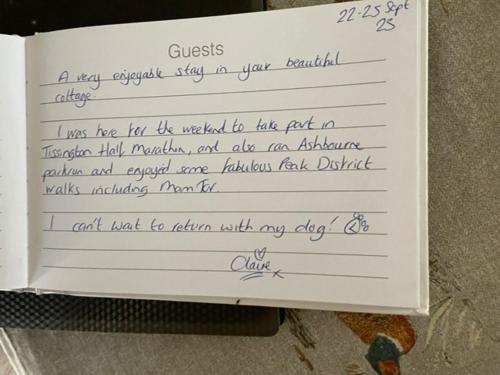 22-25 Sept
23
Guests
A very enjoyable stay in your beautiful
cottage.
I was here for the weekend to take part in
Tissington Half Marathon, and also ran Ashbourne
parkrun and enjoyed some fabulous Peak District
walks including Mam Tor.
I can't wait to return with my dog!
Claire x